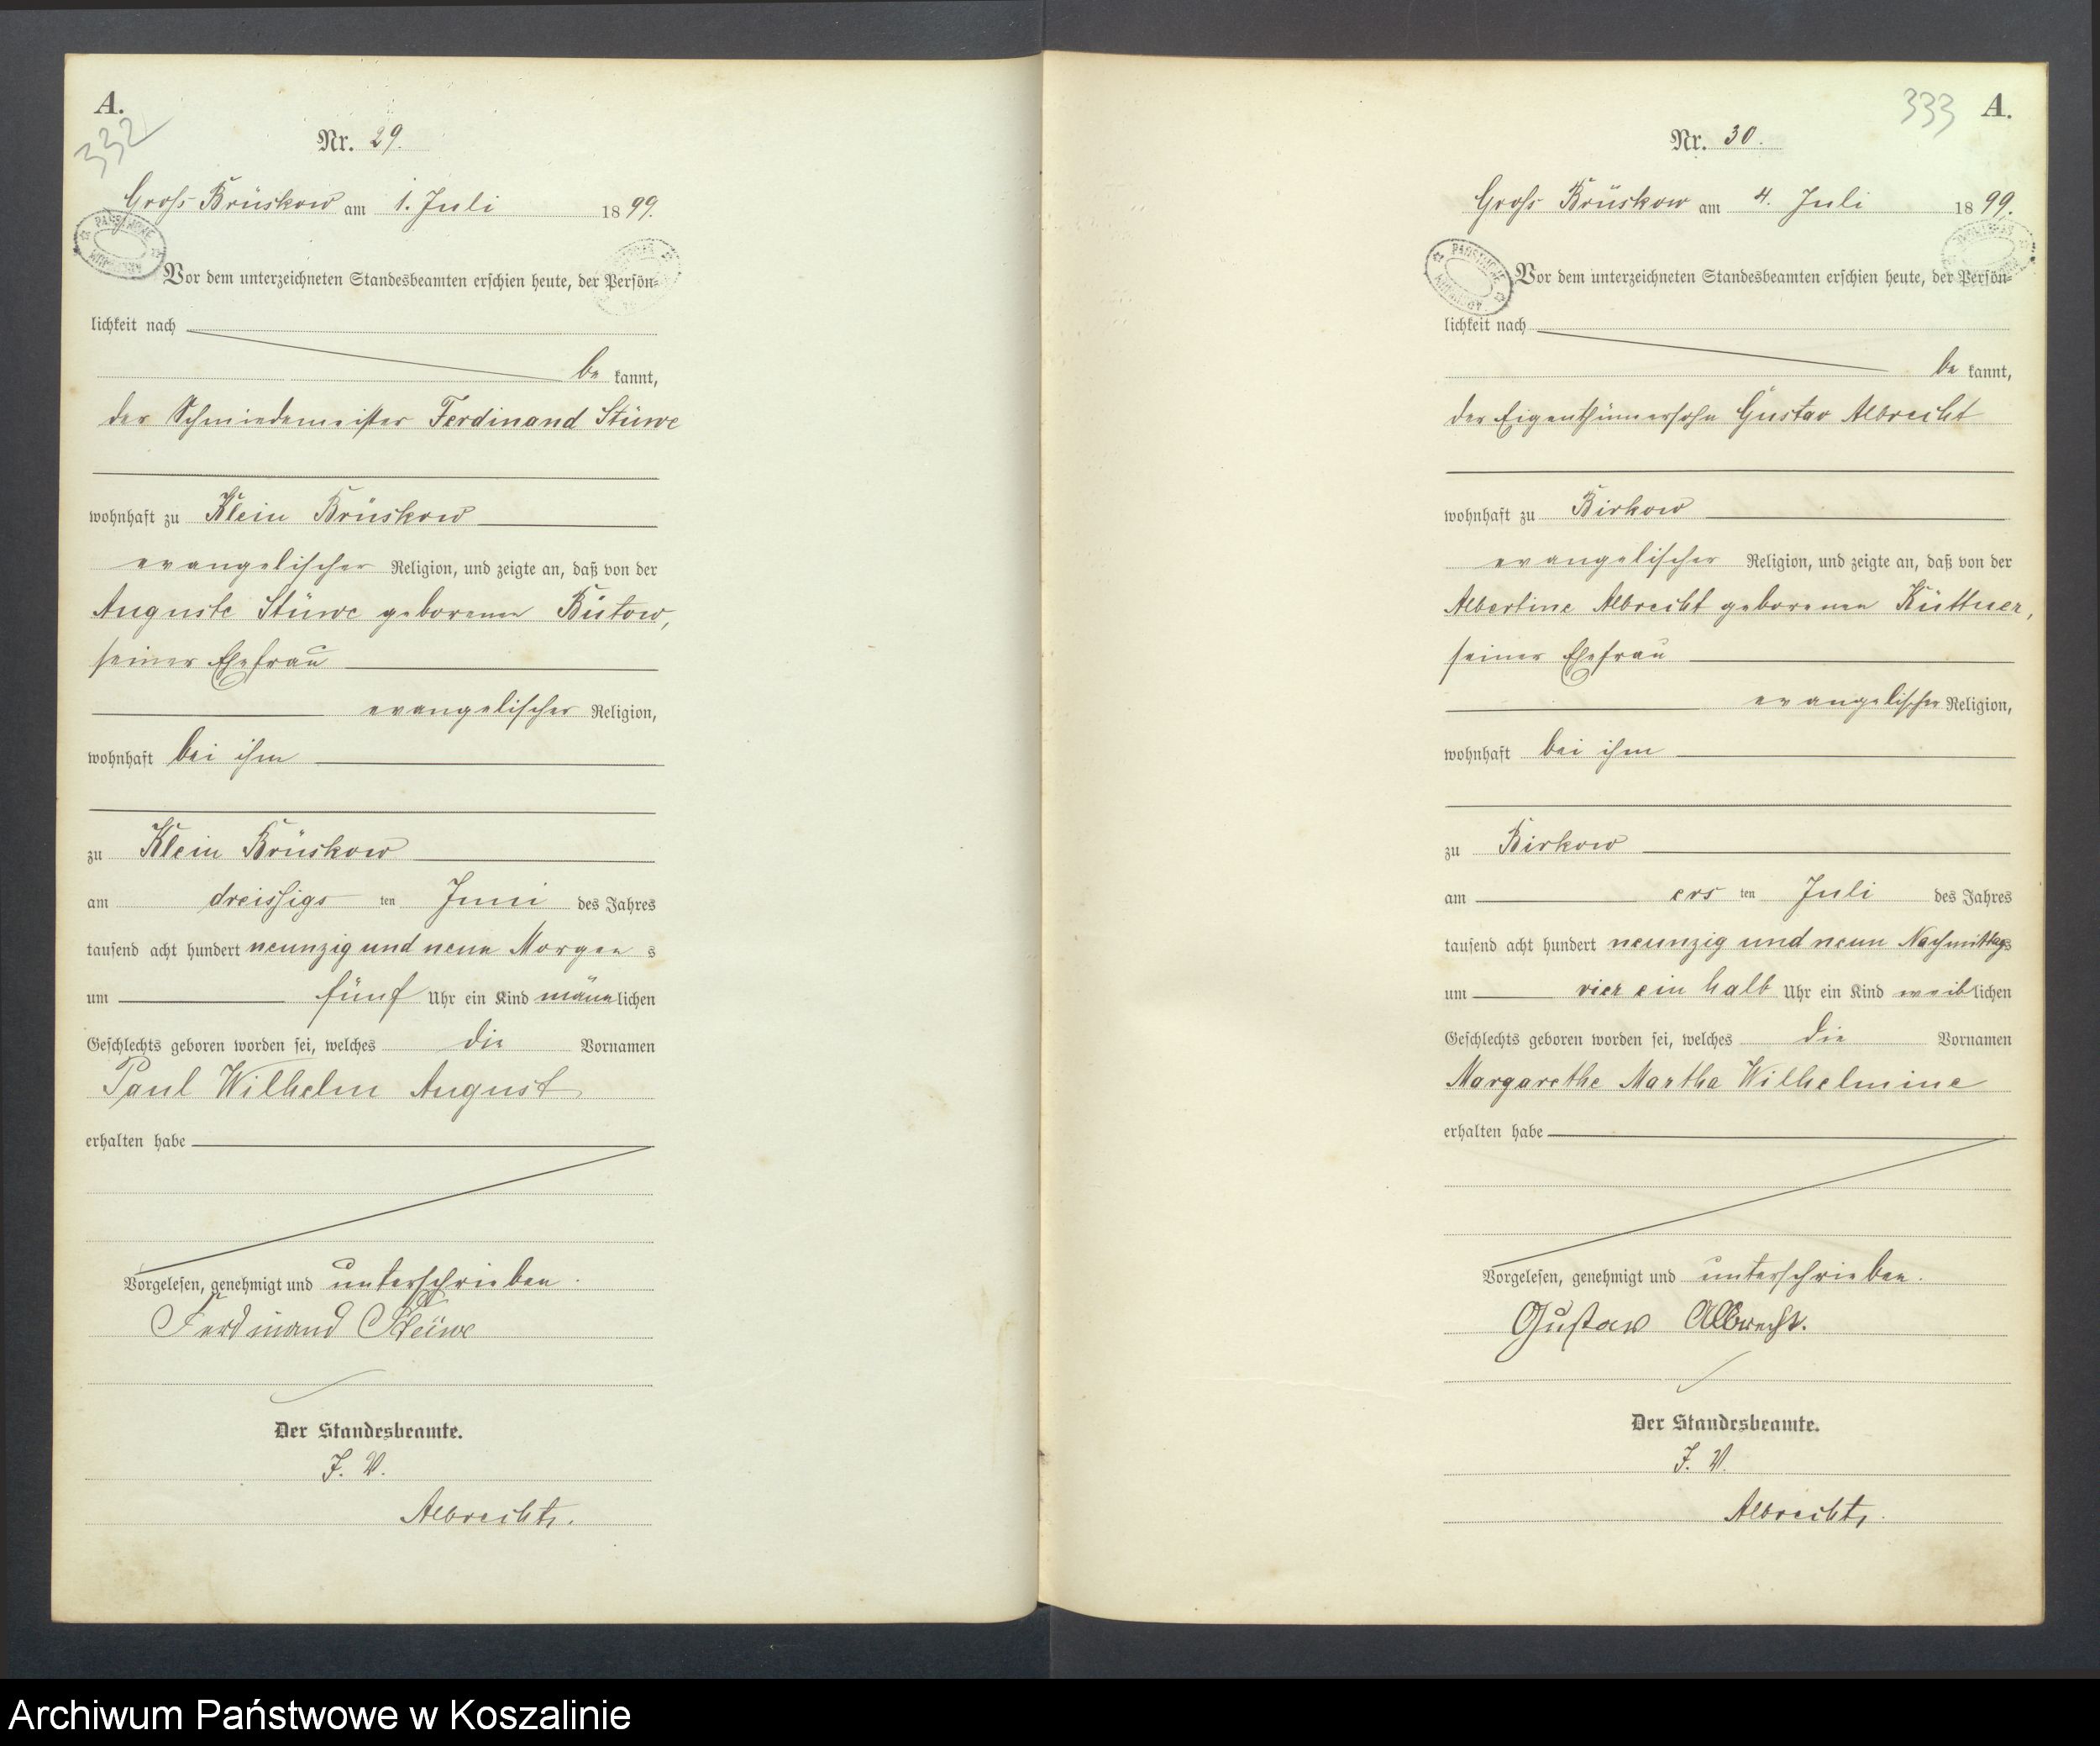 A.
332
Nr. 29.
Gross Brüskow am 1. Juli 1899.
Vor dem unterzeichneten Standesbeamten erschien heute, der Persön-
lichkeit nach
be kannt,
der Schmiedemeister Ferdinand Stüwe
wohnhaft zu Klein Brüskow
evangelischer Religion, und zeigte an, daß von der
Auguste Stüwe geborenen Bütow,
seiner Ehefrau
evangelischer Religion,
wohnhaft bei ihm
zu Klein Brüskow
am dreissigs ten Juni des Jahres
tausend acht hundert neunzig und neun Morgen s
um fünf Uhr ein Kind männlichen
Geschlechts geboren worden sei, welches die Vornamen
Paul Wilhelm August
erhalten habe
Vorgelesen, genehmigt und unterschrieben.
Ferdinand Stüwe
Der Standesbeamte.
J. V.
Albrecht.
333 A.
Nr. 30.
Gross Brüskow am 4. Juli 1899.
Vor dem unterzeichneten Standesbeamten erschien heute, der Persön-
lichkeit nach
be kannt,
der Eigenthümersohn Gustav Albrecht
wohnhaft zu Birkow
evangelischer Religion, und zeigte an, daß von der
Albertine Albrecht geborenen Küttner,
seiner Ehefrau
evangelischer Religion,
wohnhaft bei ihm
zu Birkow
am ers ten Juli des Jahres
tausend acht hundert neunzig und neun Nachmittags
um vier ein halb Uhr ein Kind weiblichen
Geschlechts geboren worden sei, welches die Vornamen
Margarethe Martha Wilhelmine
erhalten habe
Vorgelesen, genehmigt und unterschrieben.
Gustav Albrecht.
Der Standesbeamte.
J. V.
Albrecht.
Archiwum Państwowe w Koszalinie